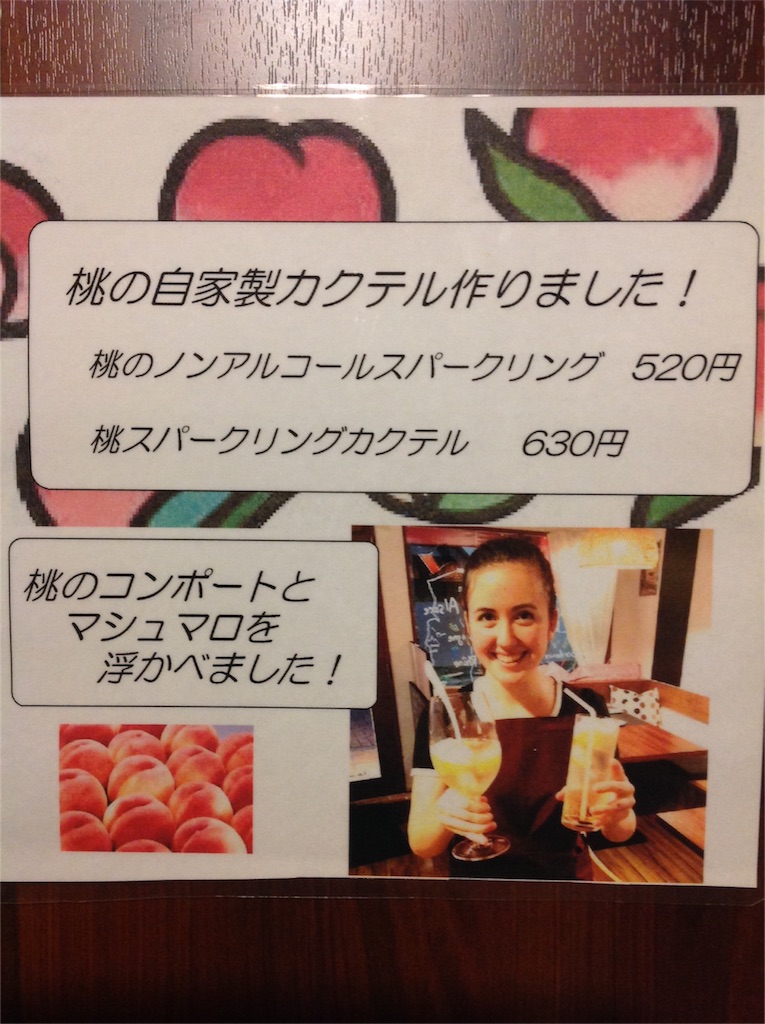 桃の自家製カクテル作りました！
桃のノンアルコールスパークリング 520円
桃スパークリングカクテル 630円
桃のコンポートと
マシュマロを
浮かべました！